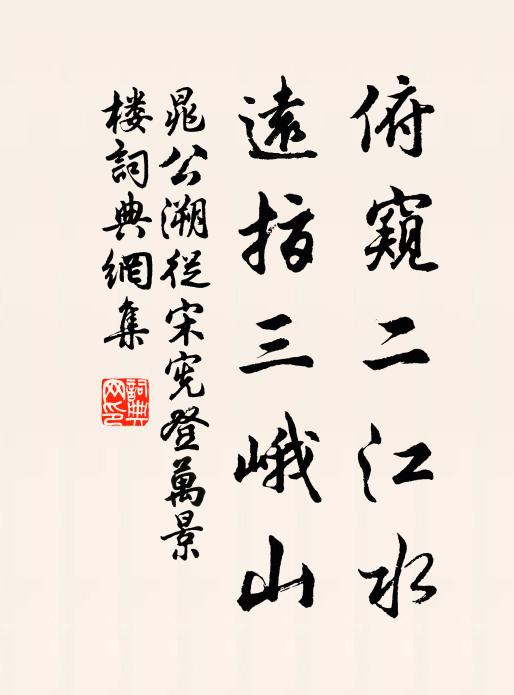 俯窺二江水
遠指三峨山
晁公溯從宋憲登萬景
楼詞典網集
詞典网印